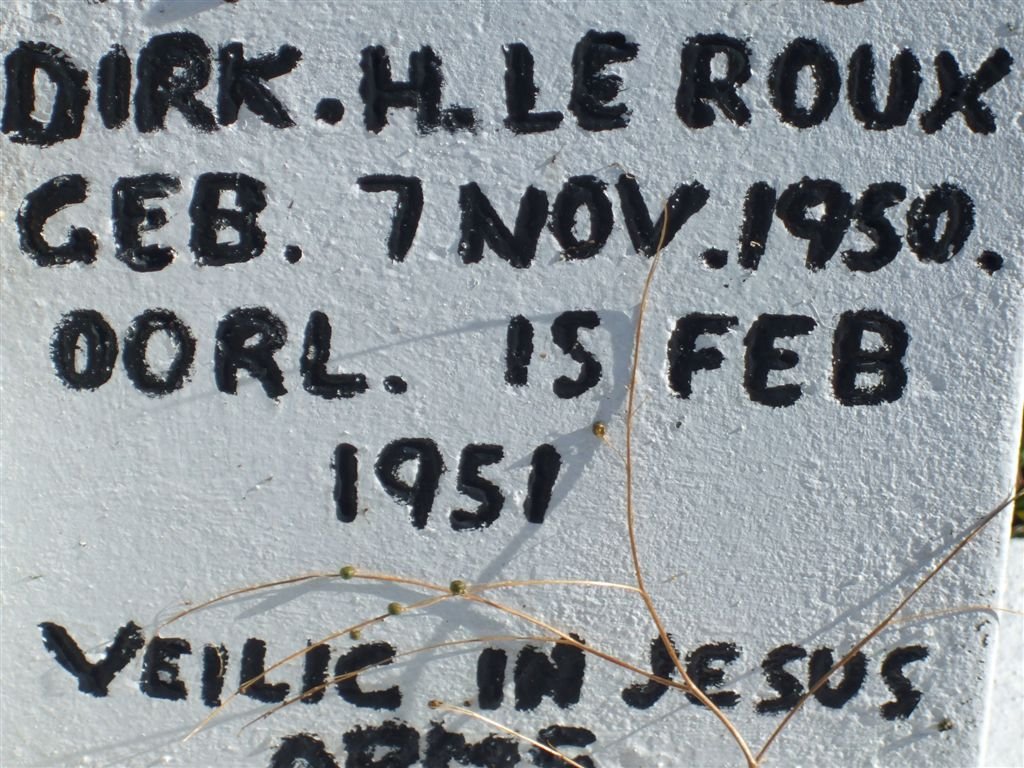 DIRK.H. LE ROUX
GEB. 7 NOV.1950.
OORL. 15 FEB
1951
VEILIG IN JESUS
ARMS